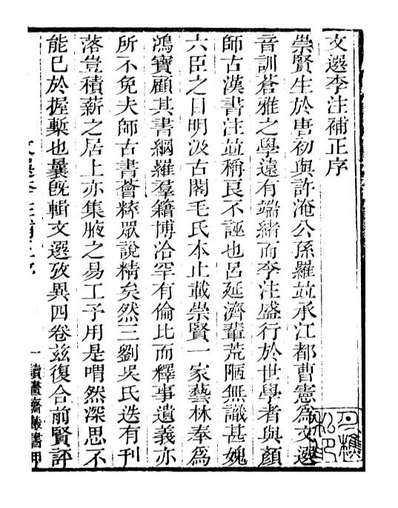 文選李注補正序
崇賢生於唐初與許淹公孫羅並承江都曹憲爲文選
音訓蒼雅之學遠有端緒而李注盛行於世學者與顏
師古漢書注並稱良不誣也呂延濟輩荒陋無識甚媿
六臣之目明汲古閣毛氏本止載崇賢一家藝林奉爲
鴻寶顧其書綱羅羣籍博洽罕有倫比而釋事遺義亦
所不免夫師古書薈稡眾說精矣然三劉吳氏迭有刊
落豈積薪之居上亦集腋之易工予用是喟然深思不
能已於握槧也曩旣輯文選攷異四卷茲復合前賢評
一
讀畫齋叢書甲